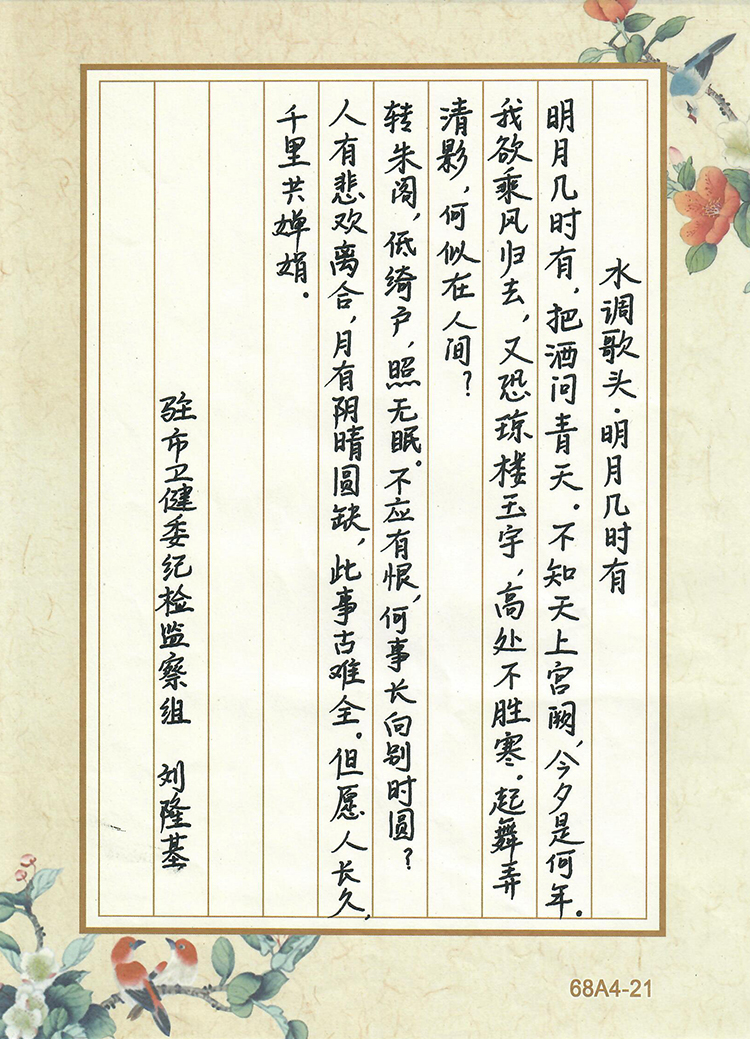 水调歌头·明月几时有
明月几时有，把酒问青天。不知天上宫阙，今夕是何年。
我欲乘风归去，又恐琼楼玉宇，高处不胜寒。起舞弄
清影，何似在人间？
转朱阁，低绮户，照无眠。不应有恨，何事长向别时圆？
人有悲欢离合，月有阴晴圆缺，此事古难全。但愿人长久，
千里共婵娟。
驻市卫健委纪检监察组 刘隆基
68A4-21